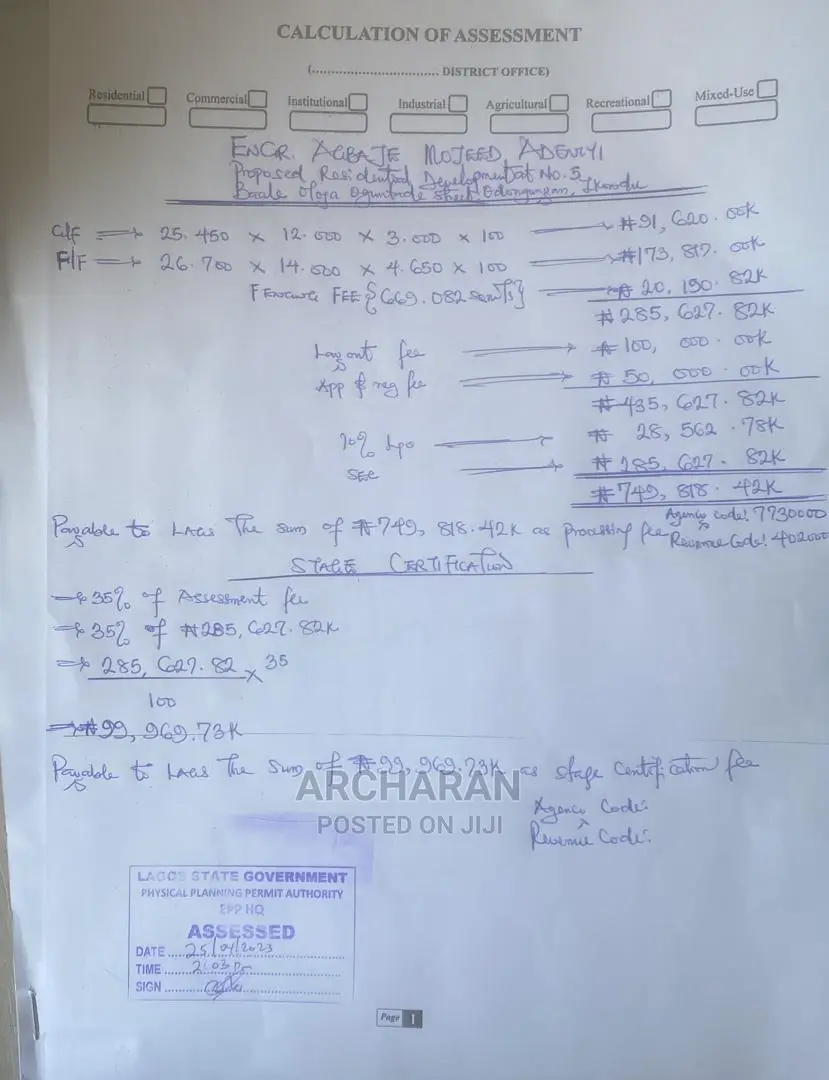 CALCULATION OF ASSESSMENT
(................................ DISTRICT OFFICE)
Residential Commercial Institutional Industrial Agricultural Recreational Mixed-Use
ENGR. AGBAJE MOJEED ADENIYI
Proposed Residential Development at No. 5,
Baale Oloja Oguntade street, Odongunyan, Ikorodu
G/F ⟹ 25.450 × 12.000 × 3.000 × 100 → ₦91,620.00K
F/F ⟹ 26.700 × 14.000 × 4.650 × 100 → ₦173,817.00K
FEE {669.082 → ₦20,190.82K
₦285,627.82K
Layout fee → ₦100,000.00K
App & reg fee → ₦50,000.00K
₦435,627.82K
10% → ₦28,562.78K
→ ₦285,627.82K
₦749,818.42K
Agency code: 7730000
Payable to LASG The sum of ₦749,818.42K as processing fee
Revenue Code: 402000
STAGE CERTIFICATION
→ 35% of Assessment fee
→ 35% of ₦285,627.82K
⇒ 285,627.82 × 35
100
⟹ ₦99,969.73K
Payable to LASG The sum of ₦99,969.73K as stage Certification fee
ARCHARAN
POSTED ON JIJI
Agency Code:
Revenue Code:
LAGOS STATE GOVERNMENT
PHYSICAL PLANNING PERMIT AUTHORITY
EPP HQ
ASSESSED
DATE.....25/04/2023
TIME.......2:03
SIGN
Page 1